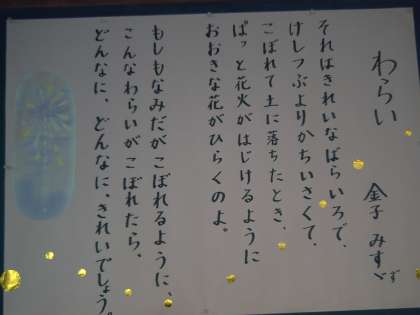 わらい
金子 みすゞ
それはきれいなばらいろで、
けしつぶよりかちいさくて、
こぼれて土に落ちたとき、
ぱっと花火がはじけるように
おおきな花がひらくのよ。
もしもなみだがこぼれるように、
こんなわらいがこぼれたら、
どんなに、どんなに、きれいでしょう。